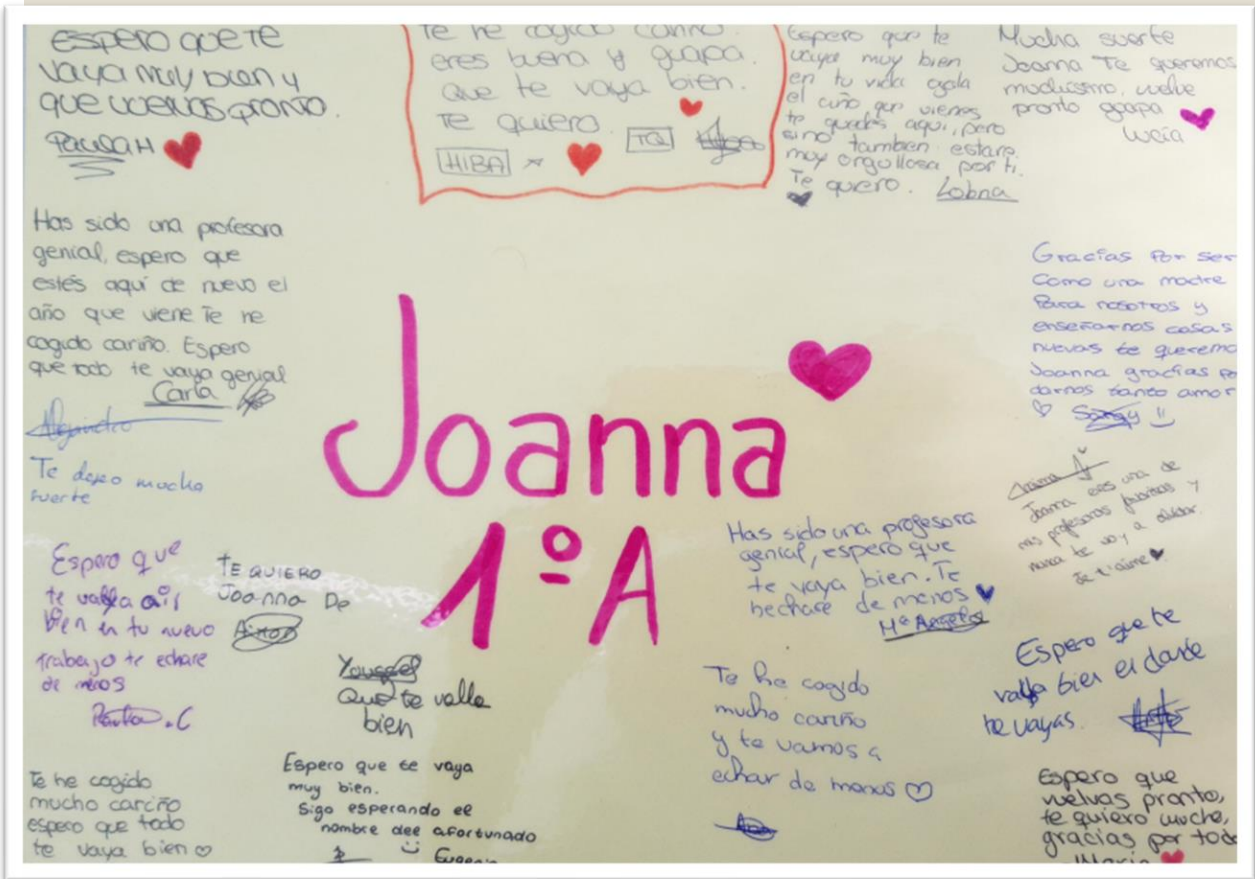 ESPERO QUE TE
VAYA MUY BIEN Y
QUE VUELVAS PRONTO.
Paula H
Te he cogido cariño.
eres buena y guapa.
que te vaya bien.
Te quiero.
TQ
HIBA
Espero que te
vaya muy bien
en tu vida ojala
el año que vienes
te quedes aquí, pero
sino tambien estare
muy orgullosa por ti.
Te quiero. Lobna
Mucha suerte
Joanna Te queremos
muchísimo, vuelve
pronto guapa
Lucía
Has sido una profesora
genial, espero que
estés aquí de nuevo el
año que viene Te he
cogido cariño. Espero
que todo te vaya genial
Carla
Alejandro
Te deseo mucha
suerte
Gracias Por ser
Como una madre
Para nosotros y
enseñarnos cosas
nuevas te queremo
Joanna gracias Po
darnos tanto amor
Joanna
1º A
Joanna eres una de
mis profesoras favoritas y
nunca te voy a olvidar.
Je t'aime
Has sido una profesora
genial, espero que
te vaya bien. Te
hechare de menos
Mª Angeles
Espero que
te valla
bien en tu nuevo
trabajo te echare
de menos
TE QUIERO
Joanna De
Aitor
Youssef
Que te valla
bien
Te he cogido
mucho cariño
y te vamos a
echar de menos
Espero que te
valla bien el donde
te vayas.
Te he cogido
mucho cariño
espero que todo
te vaya bien
Espero que te vaya
muy bien.
Sigo esperando el
nombre del afortunado
Eugenia
Espero que
vuelvas pronto,
te quiero mucho,
gracias por todo
María